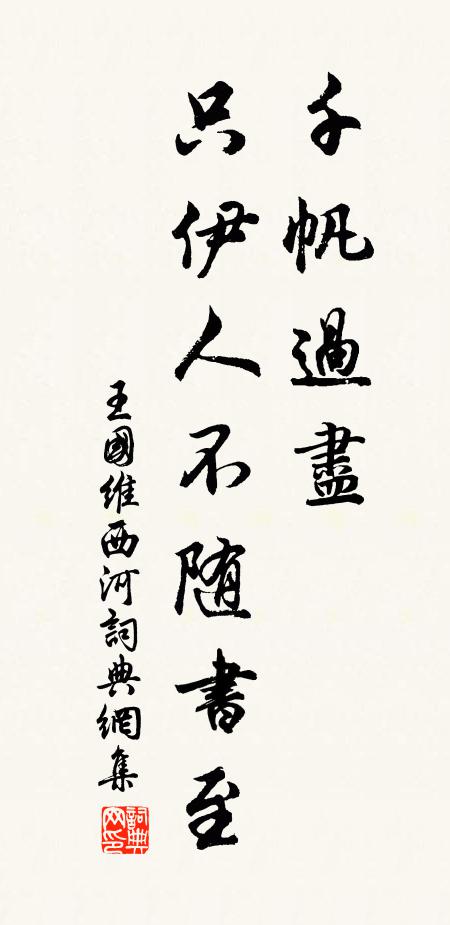 千帆過盡
只伊人不随書至
王國維西河詞典網集
詞典
网印